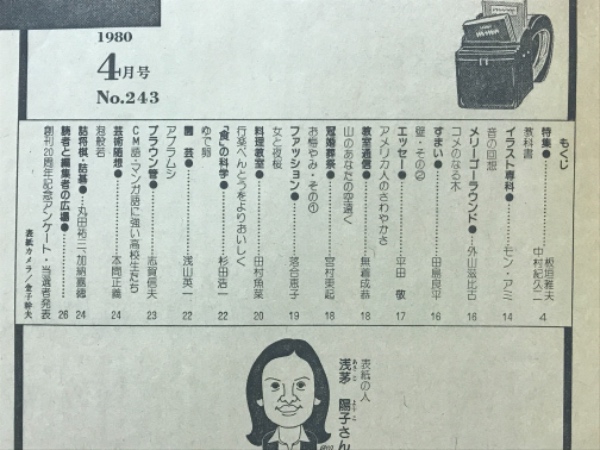 1980
4月号
No.243
もくじ
特集●
教科書
板垣雅夫
中村紀久二 4
イラスト専科●モン・アミ 14
音の回想
メリーゴーラウンド●外山滋比古 16
コメのなる木
すまい●田島良平 16
壁・その②
エッセー●平田 敬 17
アメリカ人のさわやかさ
教室通信●無着成恭 18
山のあなたの空遠く
冠婚葬祭●宮村東起 18
お悔やみ・その①
ファッション●落合恵子 19
女と夜桜
料理教室●田村魚菜 20
行楽べんとうをよりおいしく
「食」の科学●杉田浩一 22
ゆで卵
園芸●浅山英一 22
アブラムシ
ブラウン管●志賀信夫 23
CM語・マンガ語に強い高校生たち
芸術随想●本間正義 24
泡般若
詰将棋・詰碁●丸田祐三、加納嘉徳 24
読者と編集者の広場● 26
創刊20周年記念アンケート・当選者発表
表紙カメラ/金子幹夫
表紙の人
浅茅 陽子さん